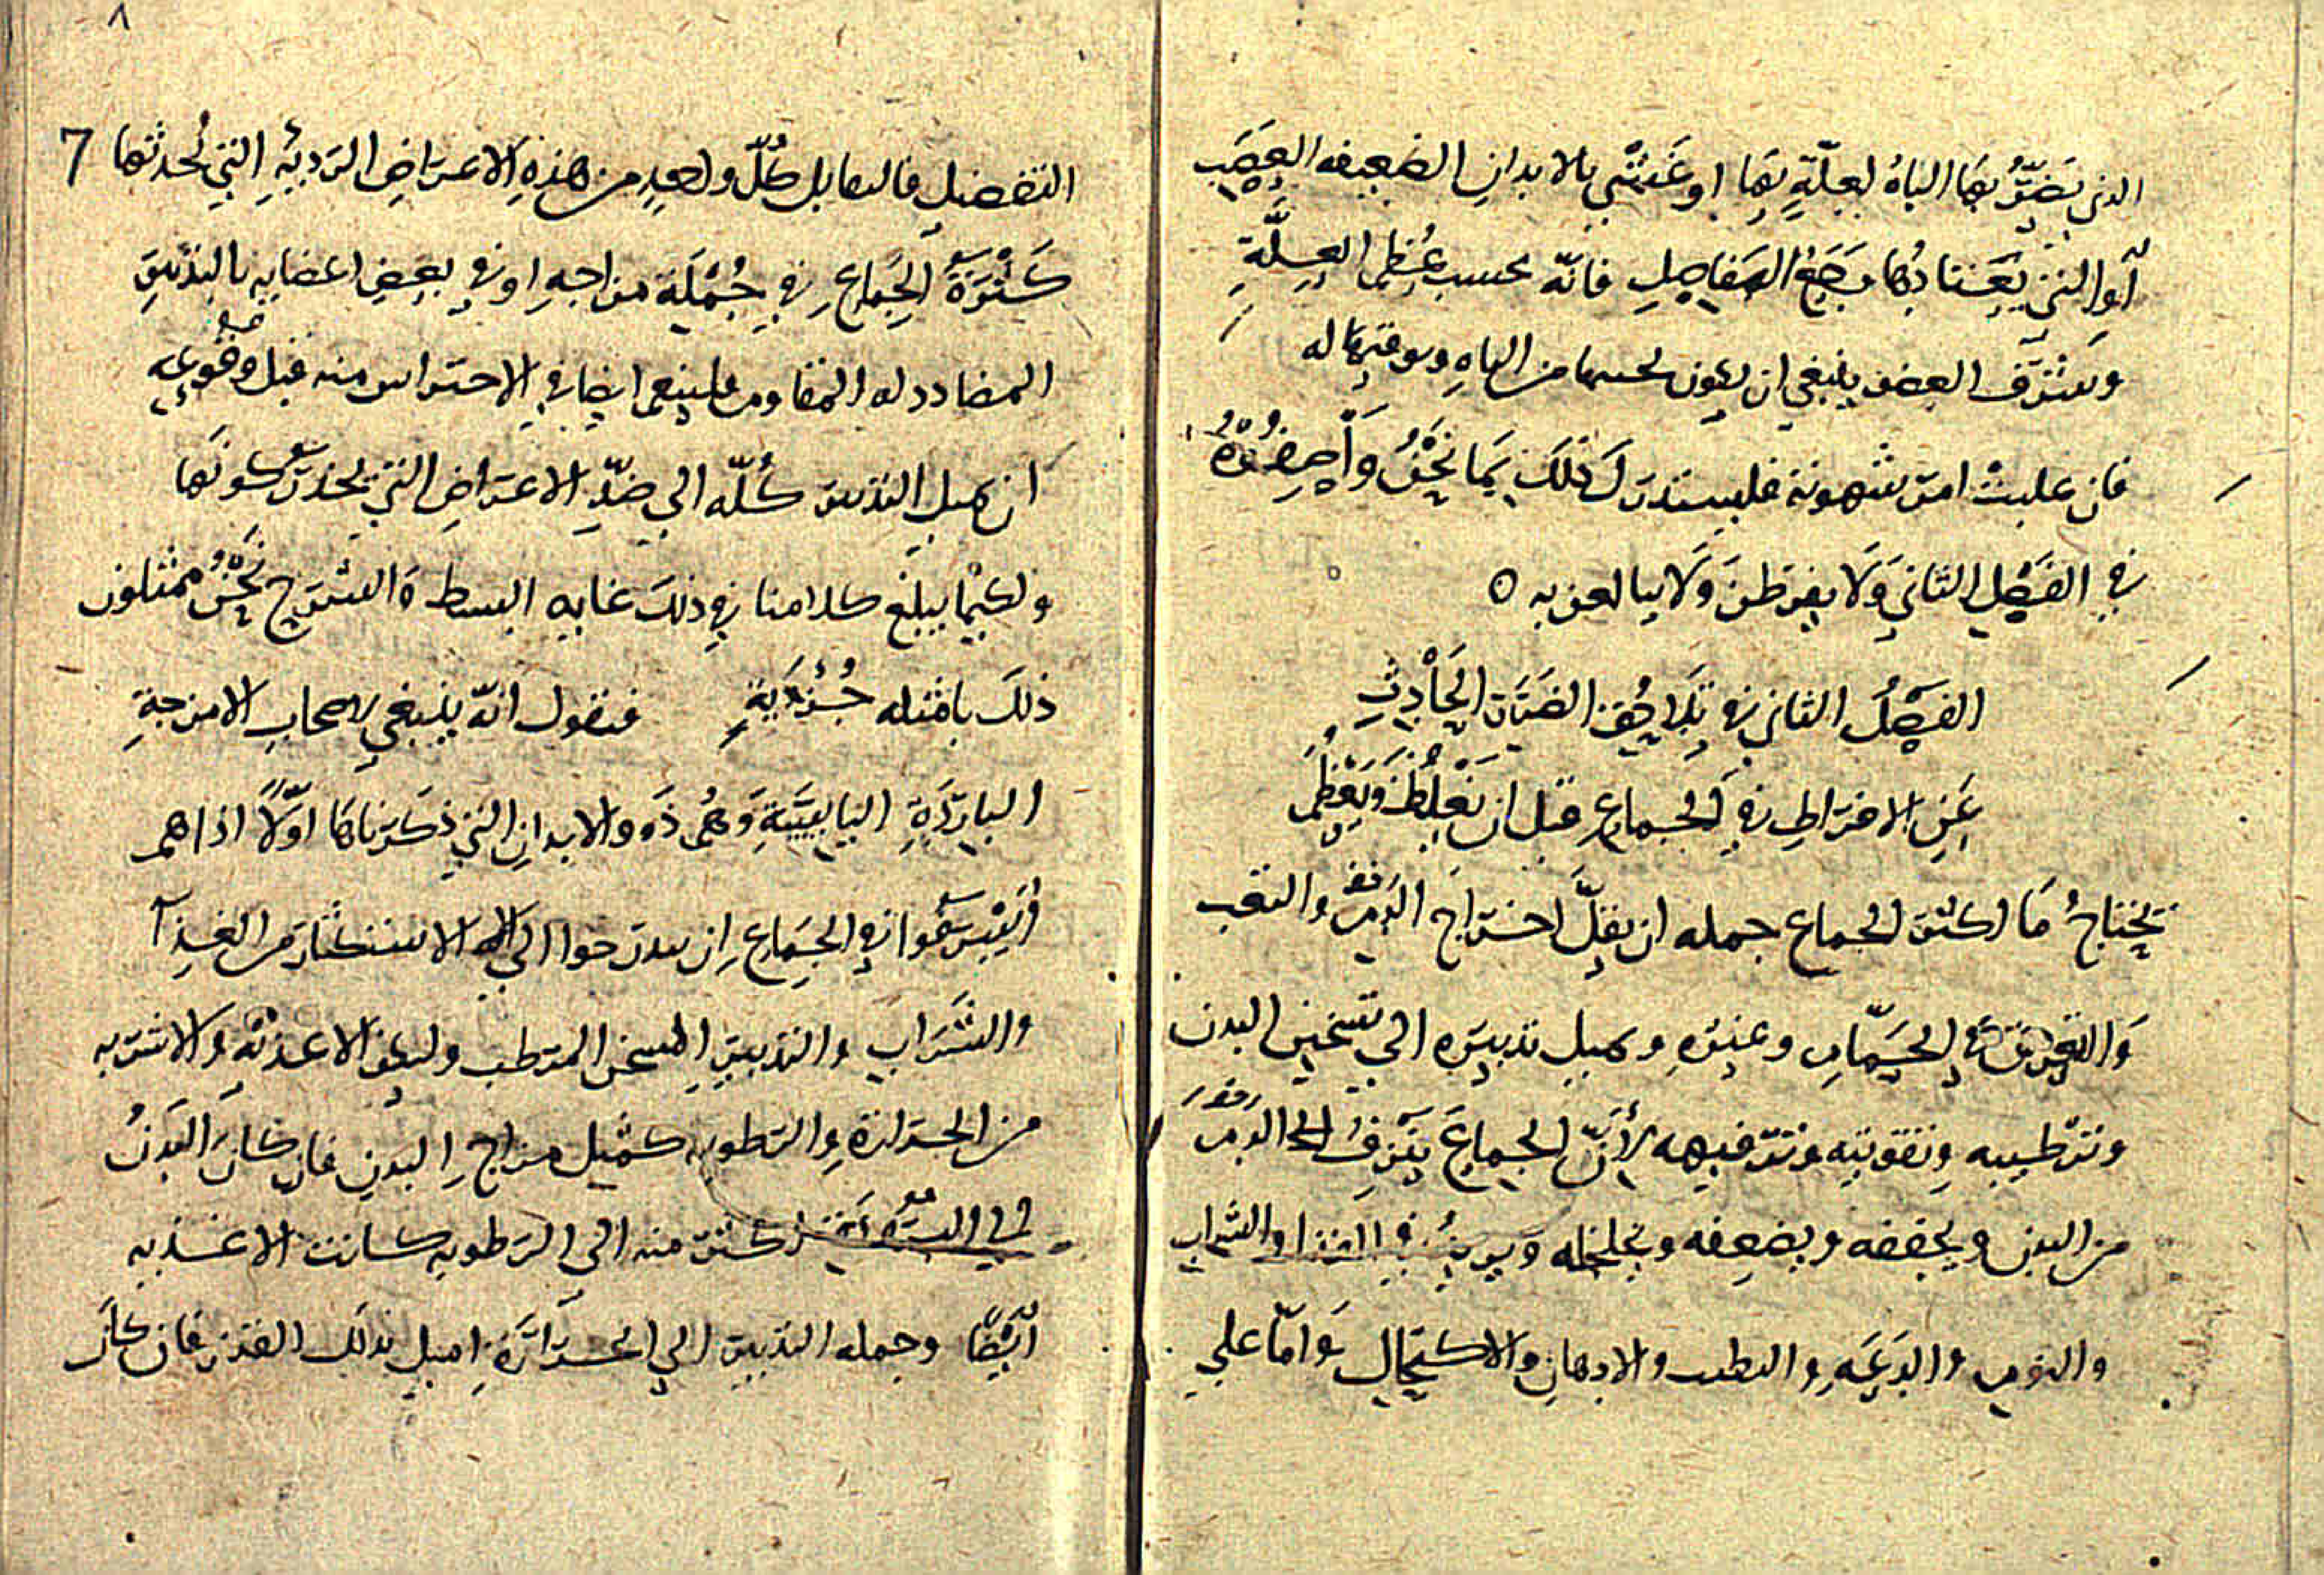 الذي يضرّ بها الباه لعلّةٍ بها او عَنَتْني بالابدان الضعيفه العصب
أو التي يعتادها وجع المفاصل فانّه بحسب عُظم العلّةِ
وشرف العضو ينبغي ان يكون من الباه وتوقيها له
فان غلبت امر شهوته فليستدرك ذلك بما نحن وَاصِفُوهُ
في الفصل الثاني وَلَا يفرطن وَلَا يبالغن به ٥
الفصل الثاني في تلاحق الضرر الحَادِثِ
عَنِ الافراطِ في الجماع قبل ان يَغْلُظَ وَيَعْظُمَ
يحتاجُ مَا اكثر الجماع جمله ان يقلّ اخراجَ الدم والتعب
وَالتعرق في الحمّام وغيره ويميل تدبيره الي تسخين البدن
وترطيبه وتقويته وترفيهه لأنّ الجماع ينزف الدم
من البدن ويجففه ويضعِفه ويخلخله ويزيدُ في الغذا والشراب
والنوم والدَعَةِ والطيب والادهان والاكتحال وَامّا علي
٨
7
التفضيل فاليقابل كُلّ واحدٍ من هذهِ الاعراضِ الرديئةِ التي تُحدثها
كَثْرَةُ الجِمَاعِ في جُمْلَة مزاجهِ او في بعض اعضايهِ بالتدبير
المضادد له المقاوم وينبغي ايضا في الاحتراس منه قبل وقوعه
ان يميل التدبير كُلّه الي ضدِّ الاعراضِ التي يحذر كونها
ولكيما يبلغ كلامنا في ذلك غايه البسط والشرح نحنُ ممثلون
ذلك بامثله جُزئيةٍ فنقول انّه ينبغي لاصحاب الامزجةِ
البارِدَةِ اليابسَةِ وَهُم ذَوو الابدانِ التي ذكرناها اوّلاً اذا هم
أسْرَفُوا في الجِماعِ ان الي الاستكثار من الغذآ
والشَرَابِ والتدبير المسخن المرطب وليكن الاغذيهِ وَالاشربه
من الحرارة والرطوبه كمثيل مزاج البدن فان كانَ البَدَنُ
اكثر منه الي الرطوبه كانت الاغذيه
ايضًا وجمله التدبير الي الحرَارَة اميل بذلك القدر فان كانَ